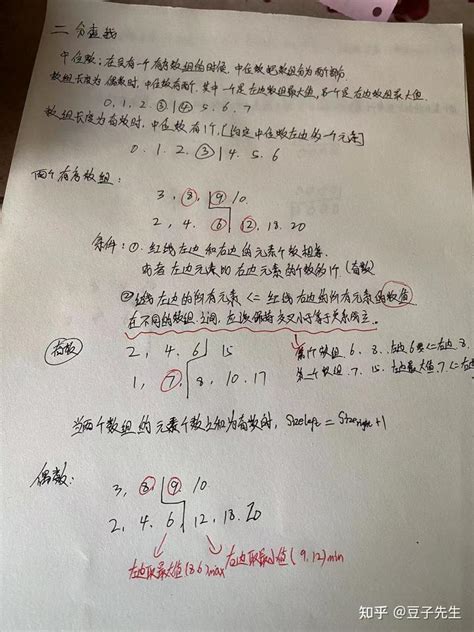 二分查找
中位数：在只有一个有序数组的时候，中位数把数组分为两个部分
数组长度为偶数时，中位数有两个，其中一个是左边数组最大值，另一个是右边数组最小值.
0, 1, 2, ③|④ 5, 6, 7
数组长度为奇数时，中位数有1个，[约定中位数左边的一个元素]
0. 1. 2. ③|4. 5. 6
两个有序数组：
3, ⑧, |⑨ 10.
2, 4. ⑥|⑫. 18. 20
条件：①. 红线左边和右边的元素个数相等.
或者 左边元素比右边元素的个数多1个 (奇数)
②红线左边的所有元素 <= 红线右边的所有元素的数值
在不同的数组之间，应该保持交叉小于等于关系成立.
奇数 2, 4. 6|15
第一个数组. 6. 8.
1, ⑦|8, 10. 17
第二个数组. 7, 15. 左边最大值. 7. <=右边
当两个数组的元素个数之和为奇数时, Size left = Size right + 1
偶数：
3, ⑧|⑨. 10
2, 4. 6|12, 18. 20
左边取最大值(8.6)max 右边取最小值(9.12)min
知乎 @豆子先生